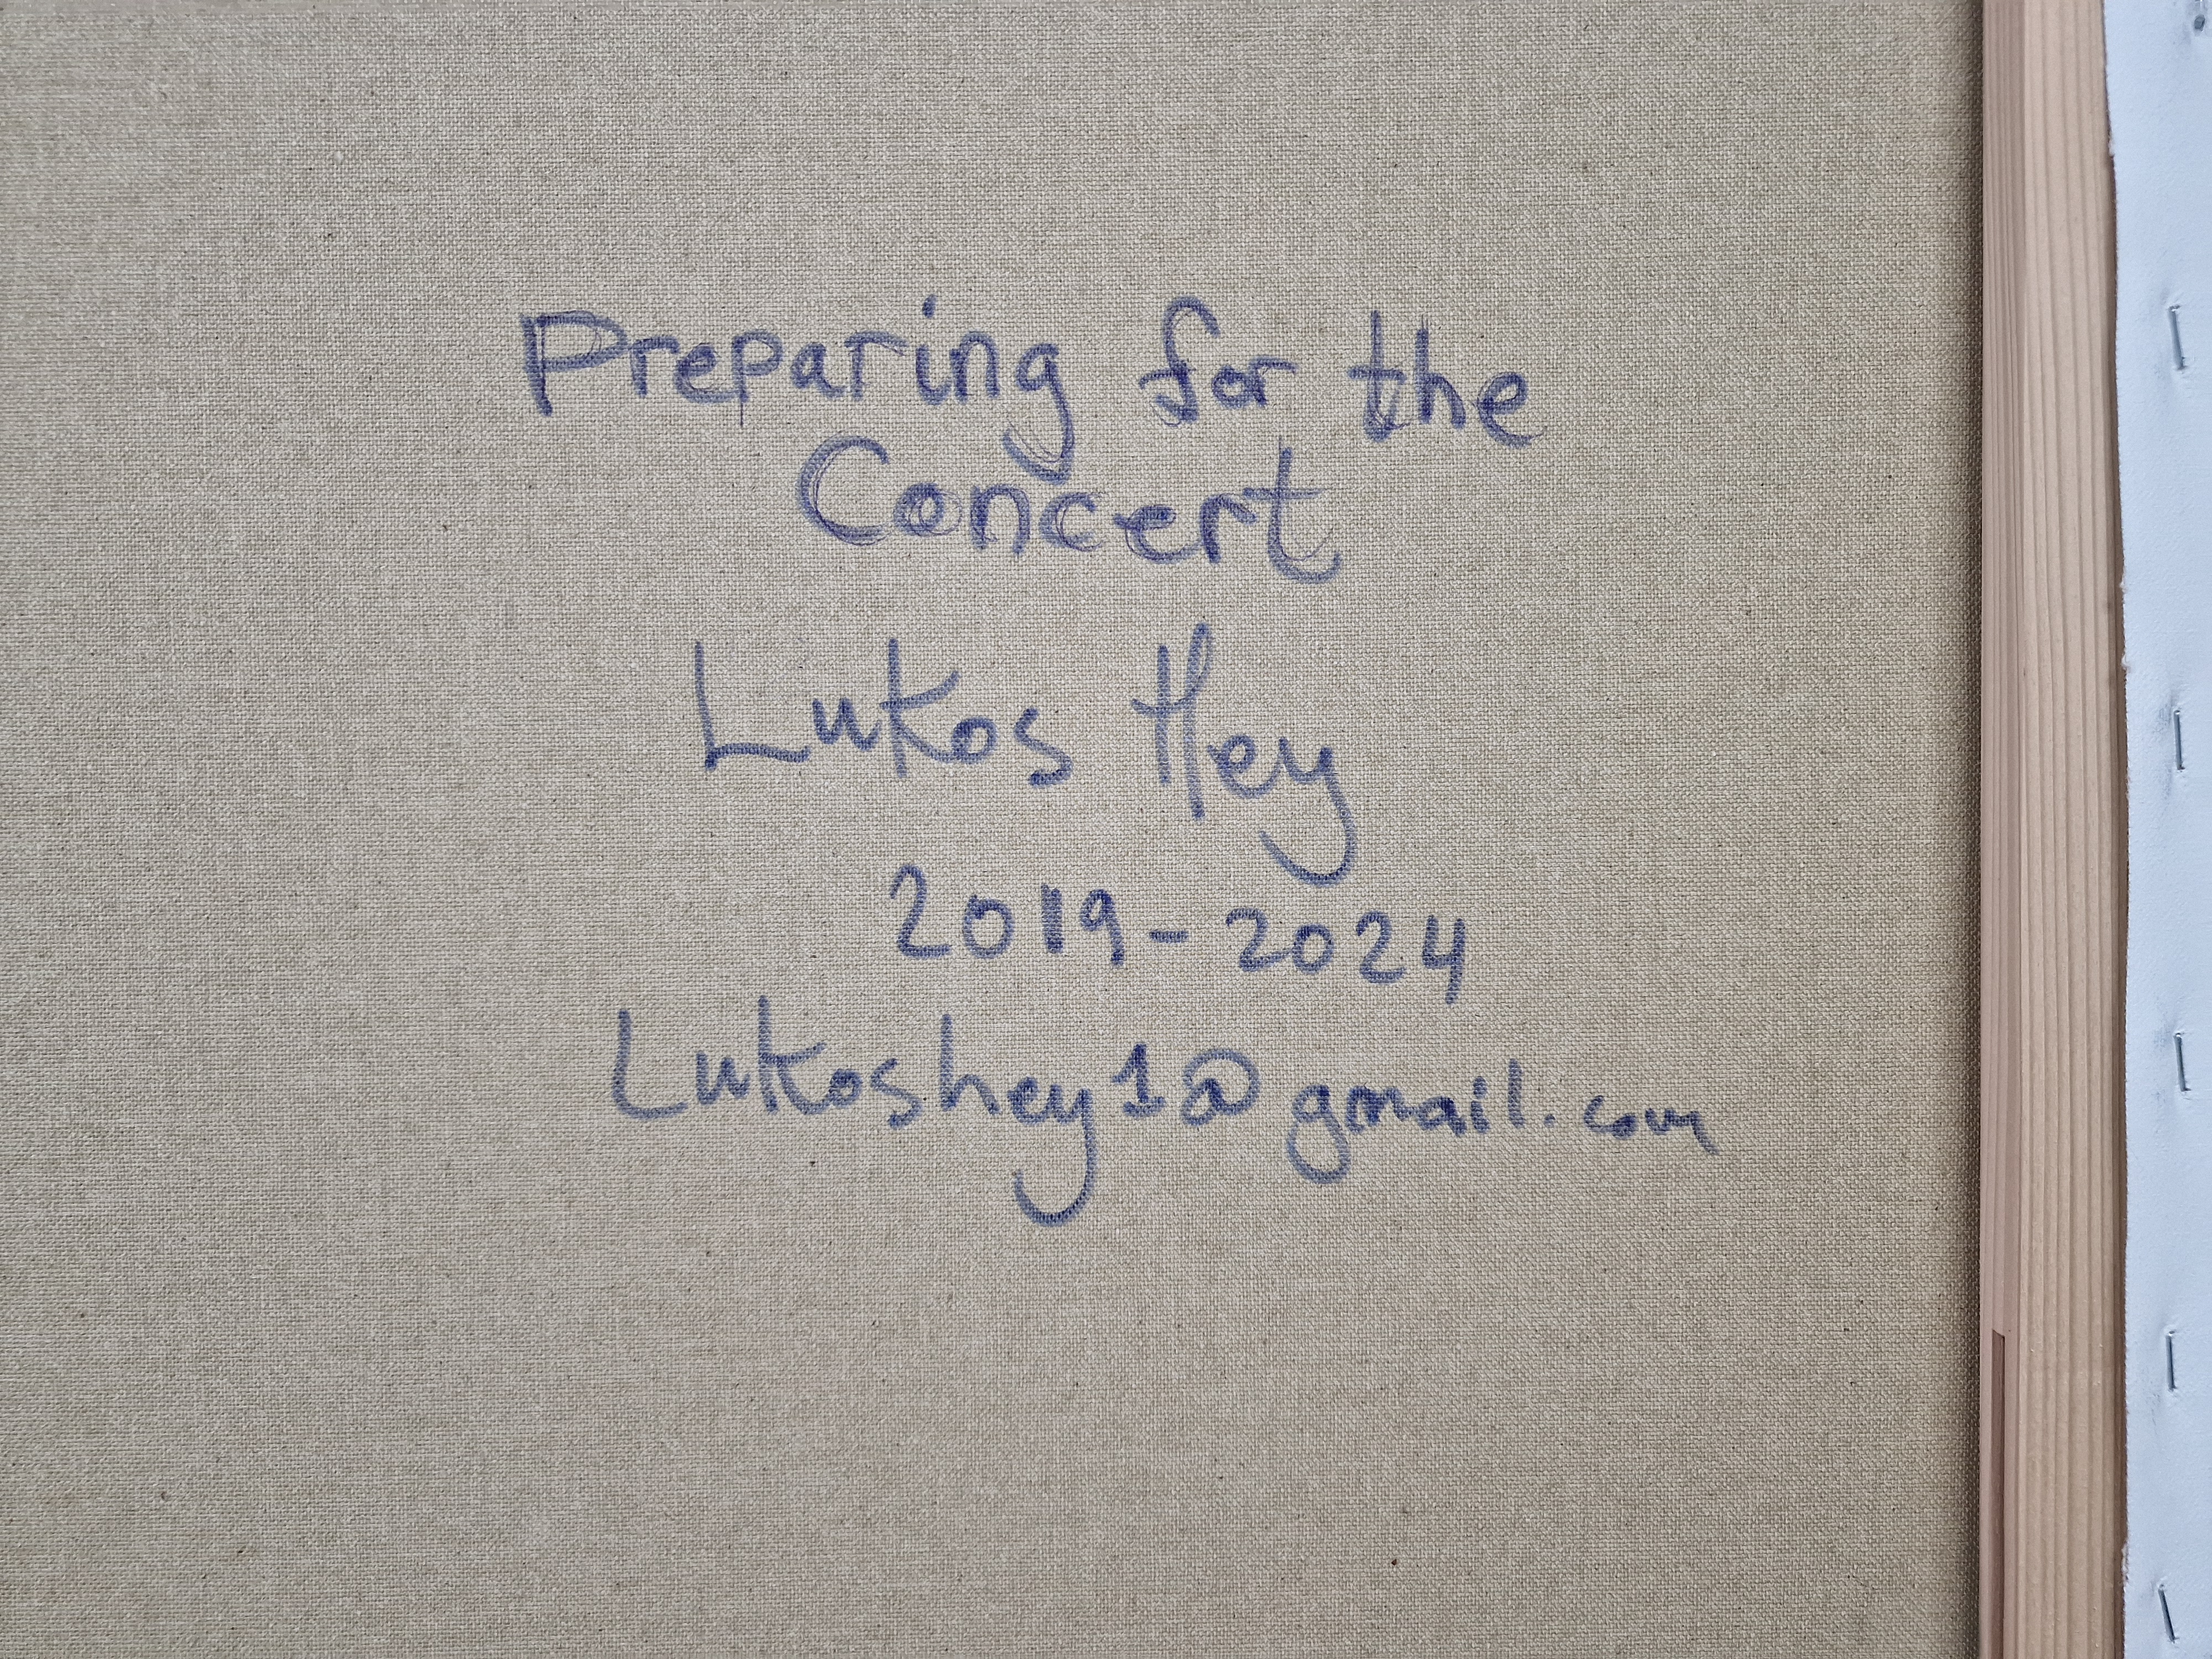 Preparing for the
Concert
Lukos Hey
2019-2024
Lukoshey1@gmail.com